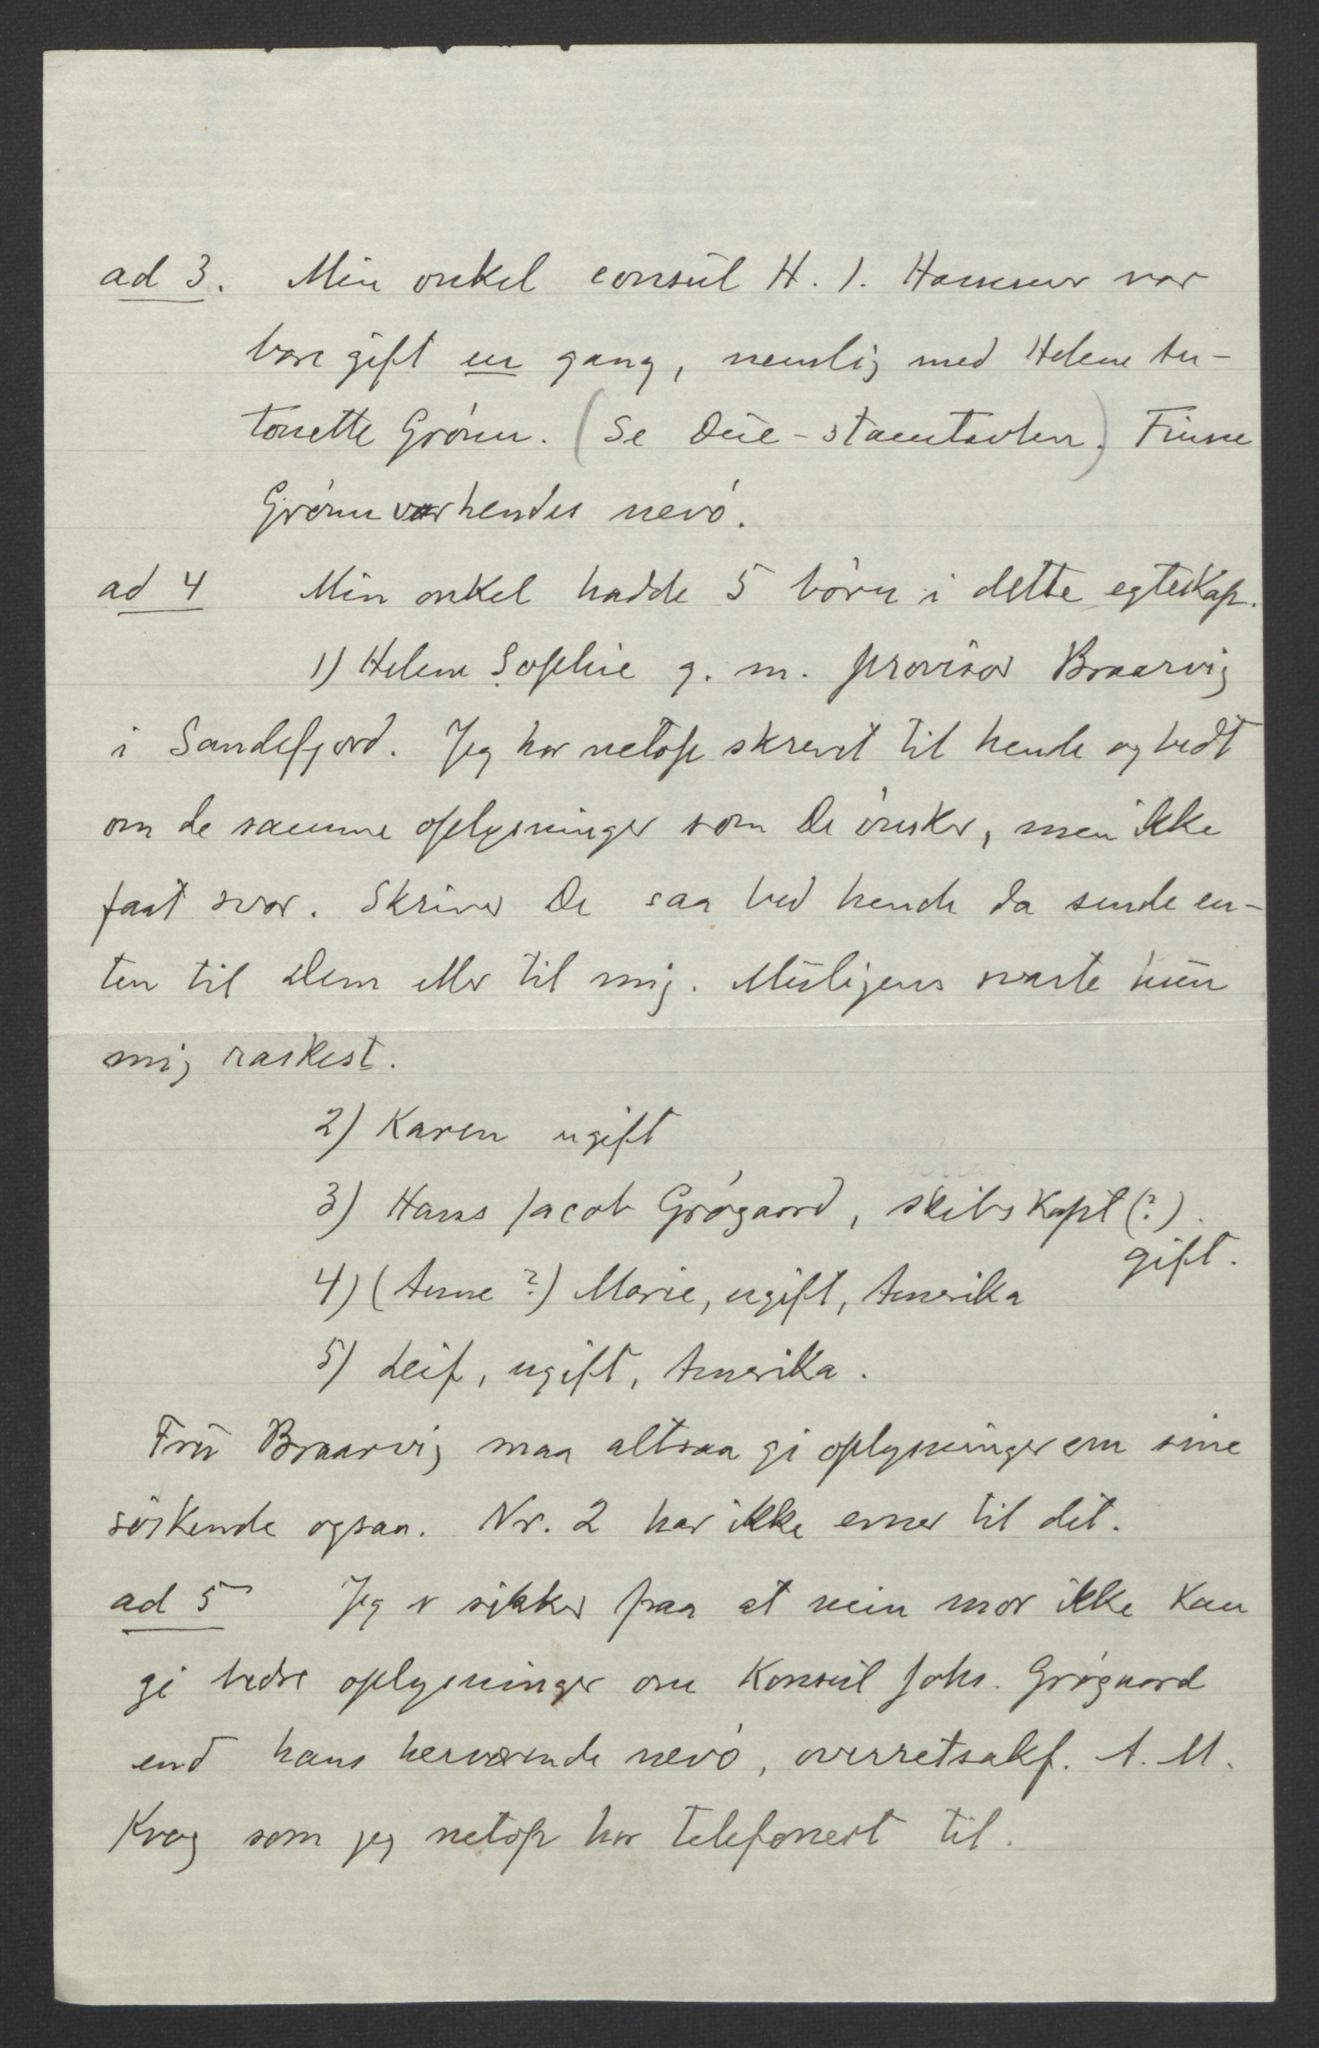 ad 3. Min onkel consul H. J. Hammer var
bare gift en gang, nemlig med Helene An-
tonette Grønn. (Se Due-stamtavlen.) Finne
Grønn var hendes nevö.
ad 4 Min onkel hadde 5 börn i dette egteskap.
1) Helene Sophie g. m. provisor Braarvig
i Sandefjord. Jeg har netop skrevet til hende og bedt
om de samme oplysninger som De önsker, men ikke
faat svar. Skriver De saa bed hende da sende en-
ten til Dem eller til mig. Muligens svarte hun
mig raskest.
2) Karen ugift
3) Hans Jacob Grögaard, skibskapt (?).
gift.
4) (Anne?) Marie, ugift, Amerika
5) Leif, ugift, Amerika.
Fru Braarvig maa altsaa gi oplysninger om sine
söskende ogsaa. Nr. 2 har ikke evner til det.
ad 5 Jeg er sikker paa at min mor ikke kan
gi bedre oplysninger om Konsul Johs. Grögaard
end hans herværende nevö, overretsakf. A. M.
Krag som jeg netop har telefonert til.